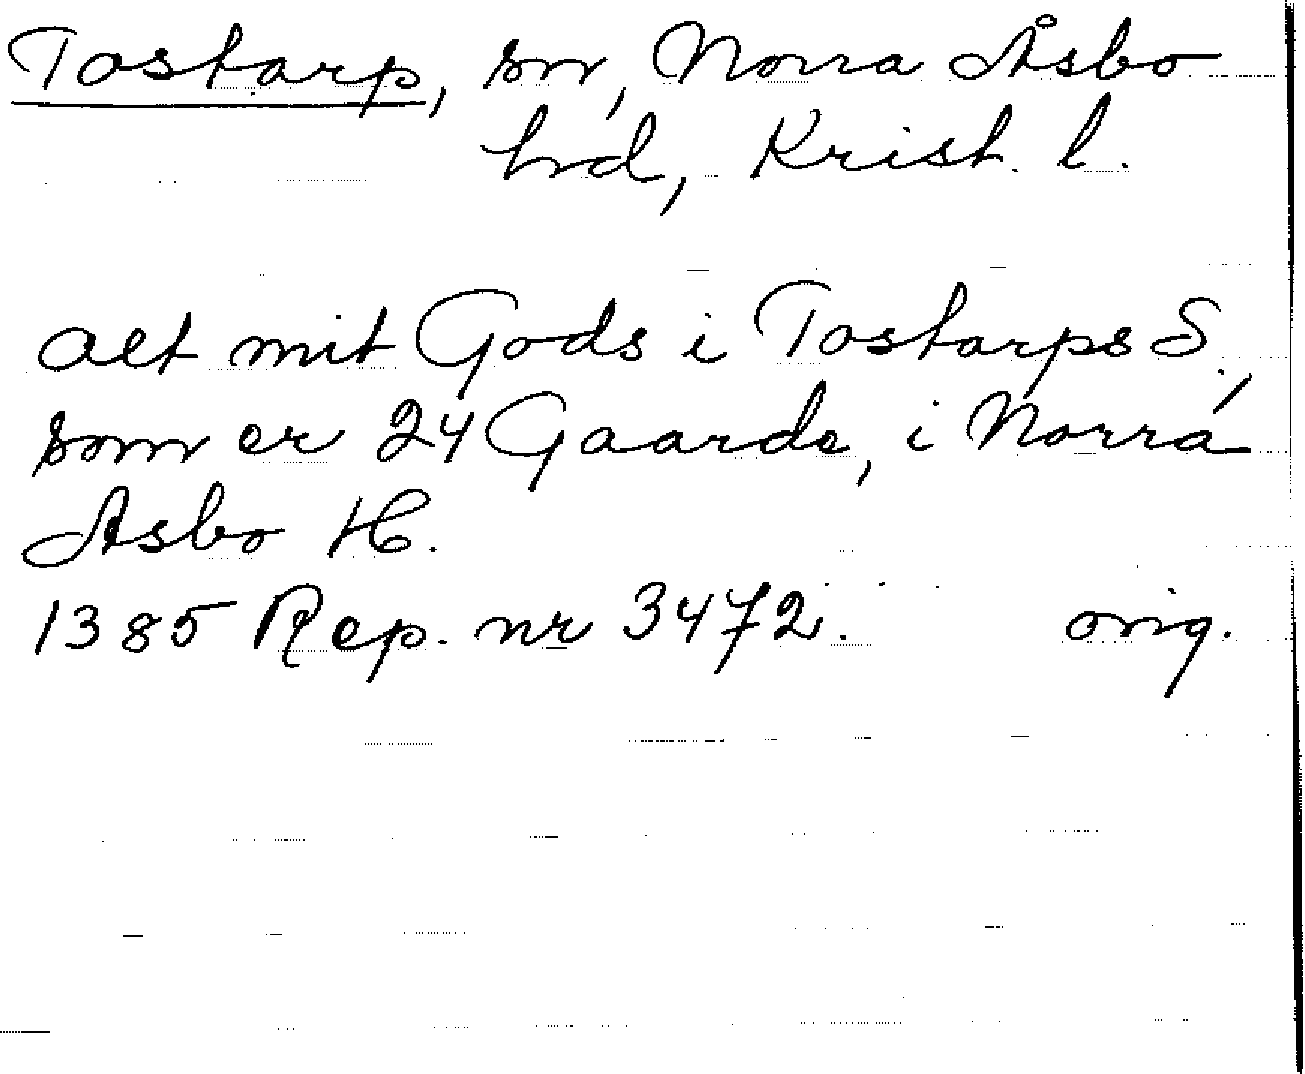 Tostarp, sn, Norra Åsbo
hrd, Krist. l.
alt mit Gods i Tostarps S.,
som er 24 Gaarde, i Norra
Asbo H.
1385 Rep. nr 3472. orig.